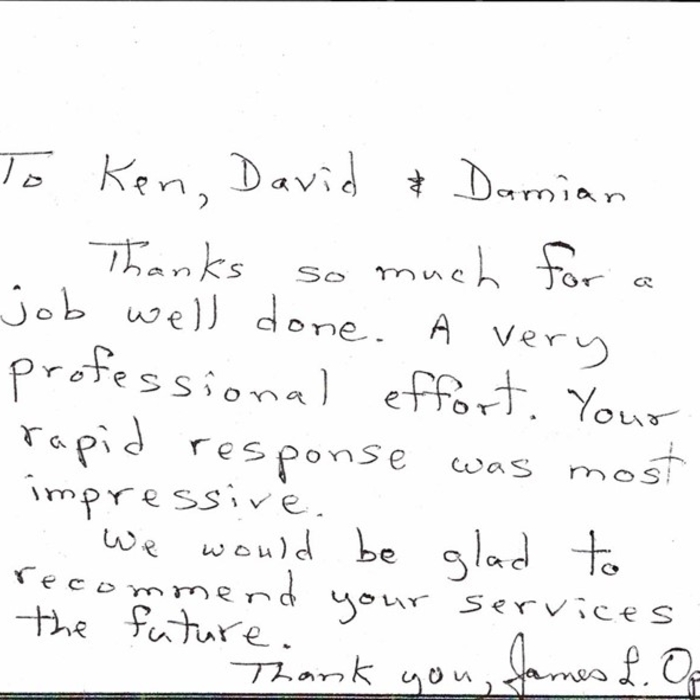 To Ken, David & Damian
Thanks so much for a
job well done. A very
professional effort. Your
rapid response was most
impressive.
We would be glad to
recommend your services
the future.
Thank you, James L.